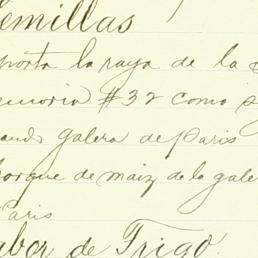 Semillas
porta la raya de la
memoria #32 como s
ando galera de Paris
porque de maiz de la gale
Paris
Labor de Trigo.